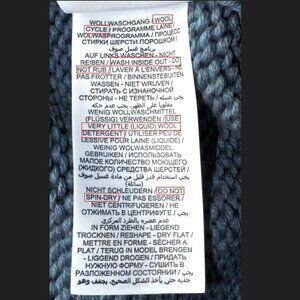 WOLLWASCHGANG / WOOL
CYCLE / PROGRAMME LAINE /
WOLWASPROGRAMMA / ПРОЦЕСС
СТИРКИ ШЕРСТИ ПОРОШКОМ /
برنامج غسيل صوف
AUF LINKS WASCHEN - NICHT
REIBEN / WASH INSIDE OUT - DO
NOT RUB / LAVER À L'ENVERS - NE
PAS FROTTER / BINNENSTEBUITEN
WASSEN - NIET WRIJVEN /
СТИРАТЬ С ИЗНАНОЧНОЙ
СТОРОНЫ - НЕ ТЕРЕТЬ / يغسل
مقلوبا على الظهر، يدم حكه
WENIG WOLLWASCHMITTEL
(FLÜSSIG) VERWENDEN / USE
VERY LITTLE (LIQUID) WOOL
DETERGENT / UTILISER PEU DE
LESSIVE POUR LAINE (LIQUIDE) /
WEINIG WOLWASMIDDEL
GEBRUIKEN / ИСПОЛЬЗОВАТЬ
МАЛОЕ КОЛИЧЕСТВО МОЮЩЕГО
(ЖИДКОГО) СРЕДСТВА ШЕРСТИ /
يجب استخدام قدر قليل من مادة غسيل صوف
(سائلة)
NICHT SCHLEUDERN / DO NOT
SPIN-DRY / NE PAS ESSORER /
NIET CENTRIFUGEREN / НЕ
ОТЖИМАТЬ В ЦЕНТРИФУГЕ / يجب
عدم عصره بالطرد المركزي
IN FORM ZIEHEN - LIEGEND
TROCKNEN / RESHAPE - DRY FLAT /
METTRE EN FORME - SÉCHER À
PLAT / TERUG IN MODEL BRENGEN
- LIGGEND DROGEN / ПРИДАТЬ
НУЖНУЮ ФОРМУ - СУШИТЬ В
РАЗЛОЖЕННОМ СОСТОЯНИИ / يجب
جذبه حتى يأخذ الشكل الصحيح, يجفف وهو